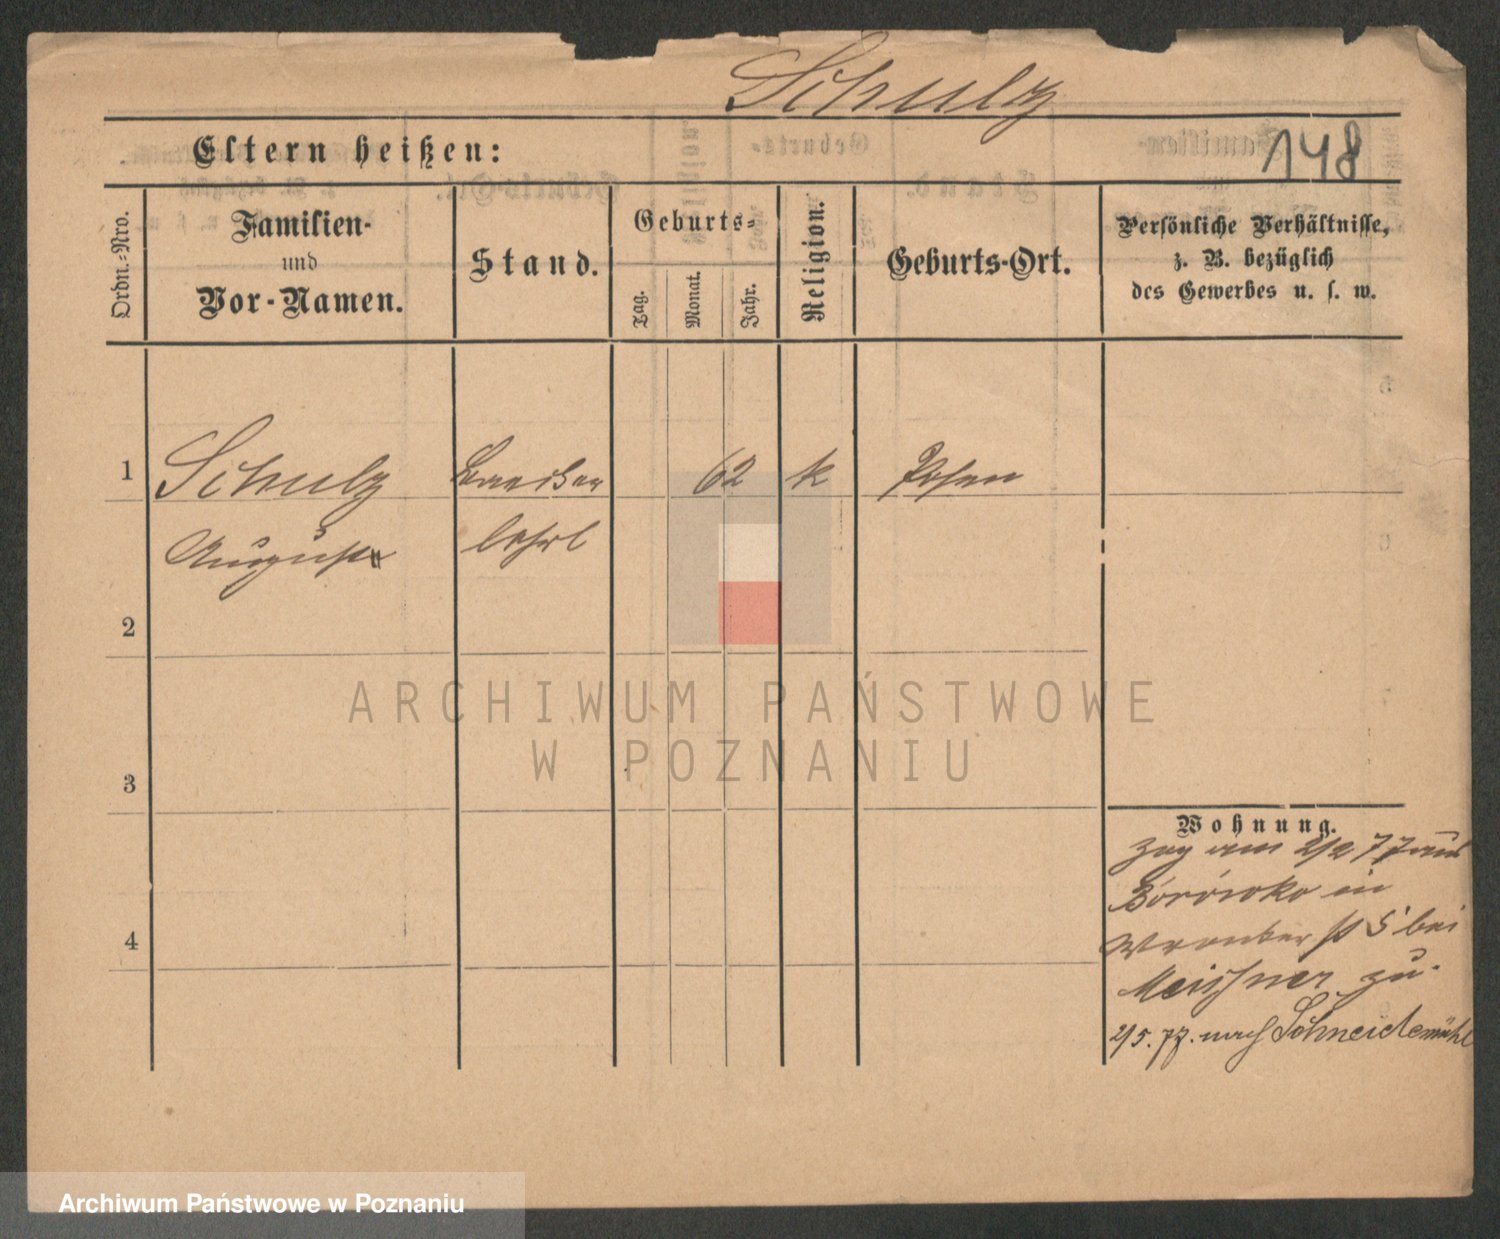 Schulz
Eltern heißen:
148
Ordn.-Nro.
Familien-
und
Vor-Namen.
Stand.
Geburts-
Tag.
Monat.
Jahr.
Religion.
Geburts-Ort.
Persönliche Verhältnisse,
z. B. bezüglich
des Gewerbes u. s. w.
1
Schulz
62
k
Posen
August
lehrl
2
ARCHIWUM PAŃSTWOWE
W POZNANIU
3
Wohnung.
zog am 2/2 77 aus
in
5 bei
Meissner zu.
2/5. 77. nach Schneidemühl
4
Archiwum Państwowe w Poznaniu